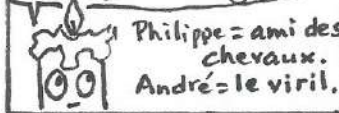 Philippe = ami des
chevaux.
André = le viril.